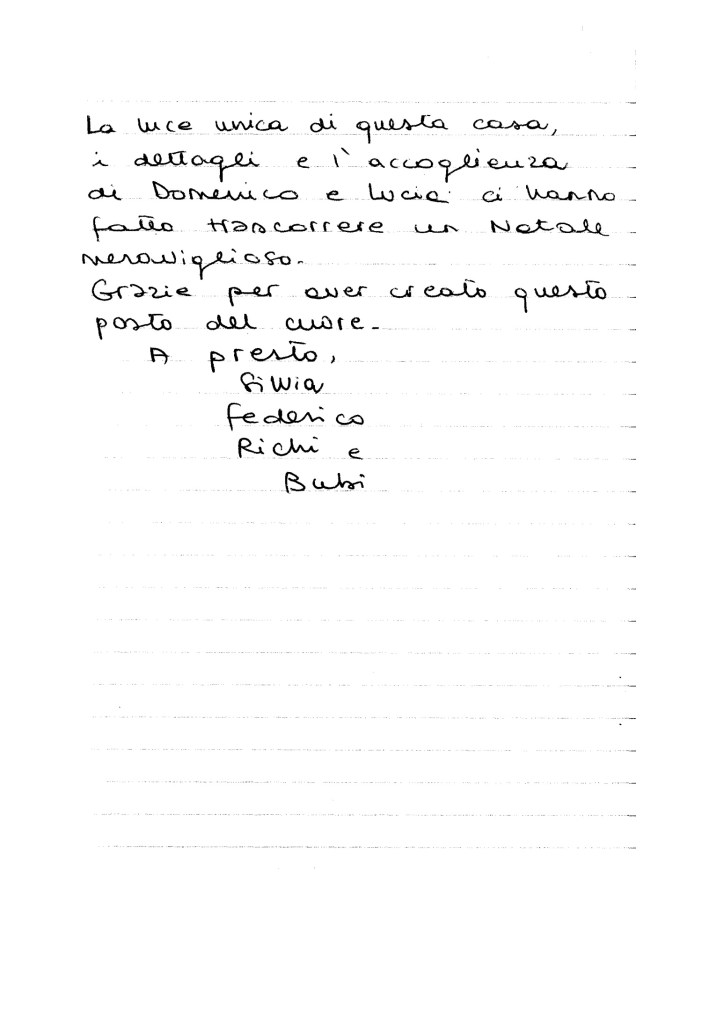 La luce unica di questa casa,
i dettagli e l'accoglienza
di Domenico e Lucia ci hanno
fatto trascorrere un Natale
meraviglioso.
Grazie per aver creato questo
posto del cuore.
A presto,
Silvia
Federico
Richi e
Bubi